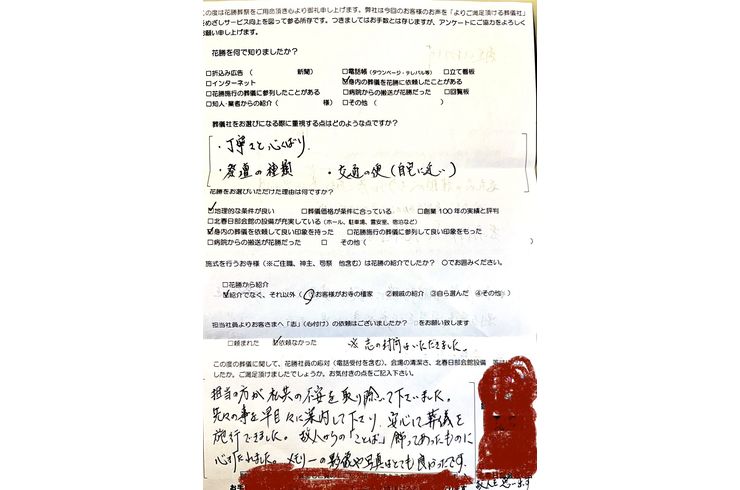 この度は花勝葬祭をご用命頂き心より御礼申し上げます。弊社は今回のお客様のお声を「よりご満足頂ける葬儀社」
をめざしサービス向上を図って参る所存です。つきましてはお手数とは存じますが、アンケートにご協力をよろしく
お願い申し上げます。
花勝を何で知りましたか？
□折込み広告（ 新聞） □電話帳（タウンページ・テレパル等） □立て看板
□インターネット ☑身内の葬儀を花勝に依頼したことがある
□花勝施行の葬儀に参列したことがある □病院からの搬送が花勝だった □回覧板
□知人・業者からの紹介（ 様） □その他（ ）
葬儀社をお選びになる際に重視する点はどのような点ですか？
・丁寧さと心くばり
・祭壇の種類 ・交通の便(自宅に近い)
花勝をお選びいただけた理由は何ですか？
☑地理的な条件が良い □葬儀価格が条件に合っている □創業100年の実績と評判
□北春日部会館の設備が充実している（ホール、駐車場、霊安室、宿泊など）
☑身内の葬儀を依頼して良い印象を持った □花勝施行の葬儀に参列して良い印象をもった
□病院からの搬送が花勝だった □ その他（ ）
施式を行うお寺様（※ご住職、神主、司祭 他含む）は花勝の紹介でしたか？ ○でお囲みください。
□花勝から紹介
☑紹介でなく、それ以外（①お客様がお寺の檀家 ②親戚の紹介 ③自ら選んだ ④その他）
担当社員よりお客さまへ「志」（心付け）の依頼はございましたか？ □をお願い致します
□頼まれた ☑依頼なかった ※志の封筒はいただきました。
この度の葬儀に関して、花勝社員の応対（電話受付を含む）、会場の清潔さ、北春日部会館設備 等は
したか。ご満足頂けましたでしょうか。お気付きの点をご記入下さい。
担当の方が私共の不安を取り除いて下さいました。
先々の事を早目々に案内して下さり、安心して葬儀を
施行できました。故人からの「ことば」飾ってあったものに
心打たれました。メモリーの影像や写真はとても良かったです。
故人を思い出す